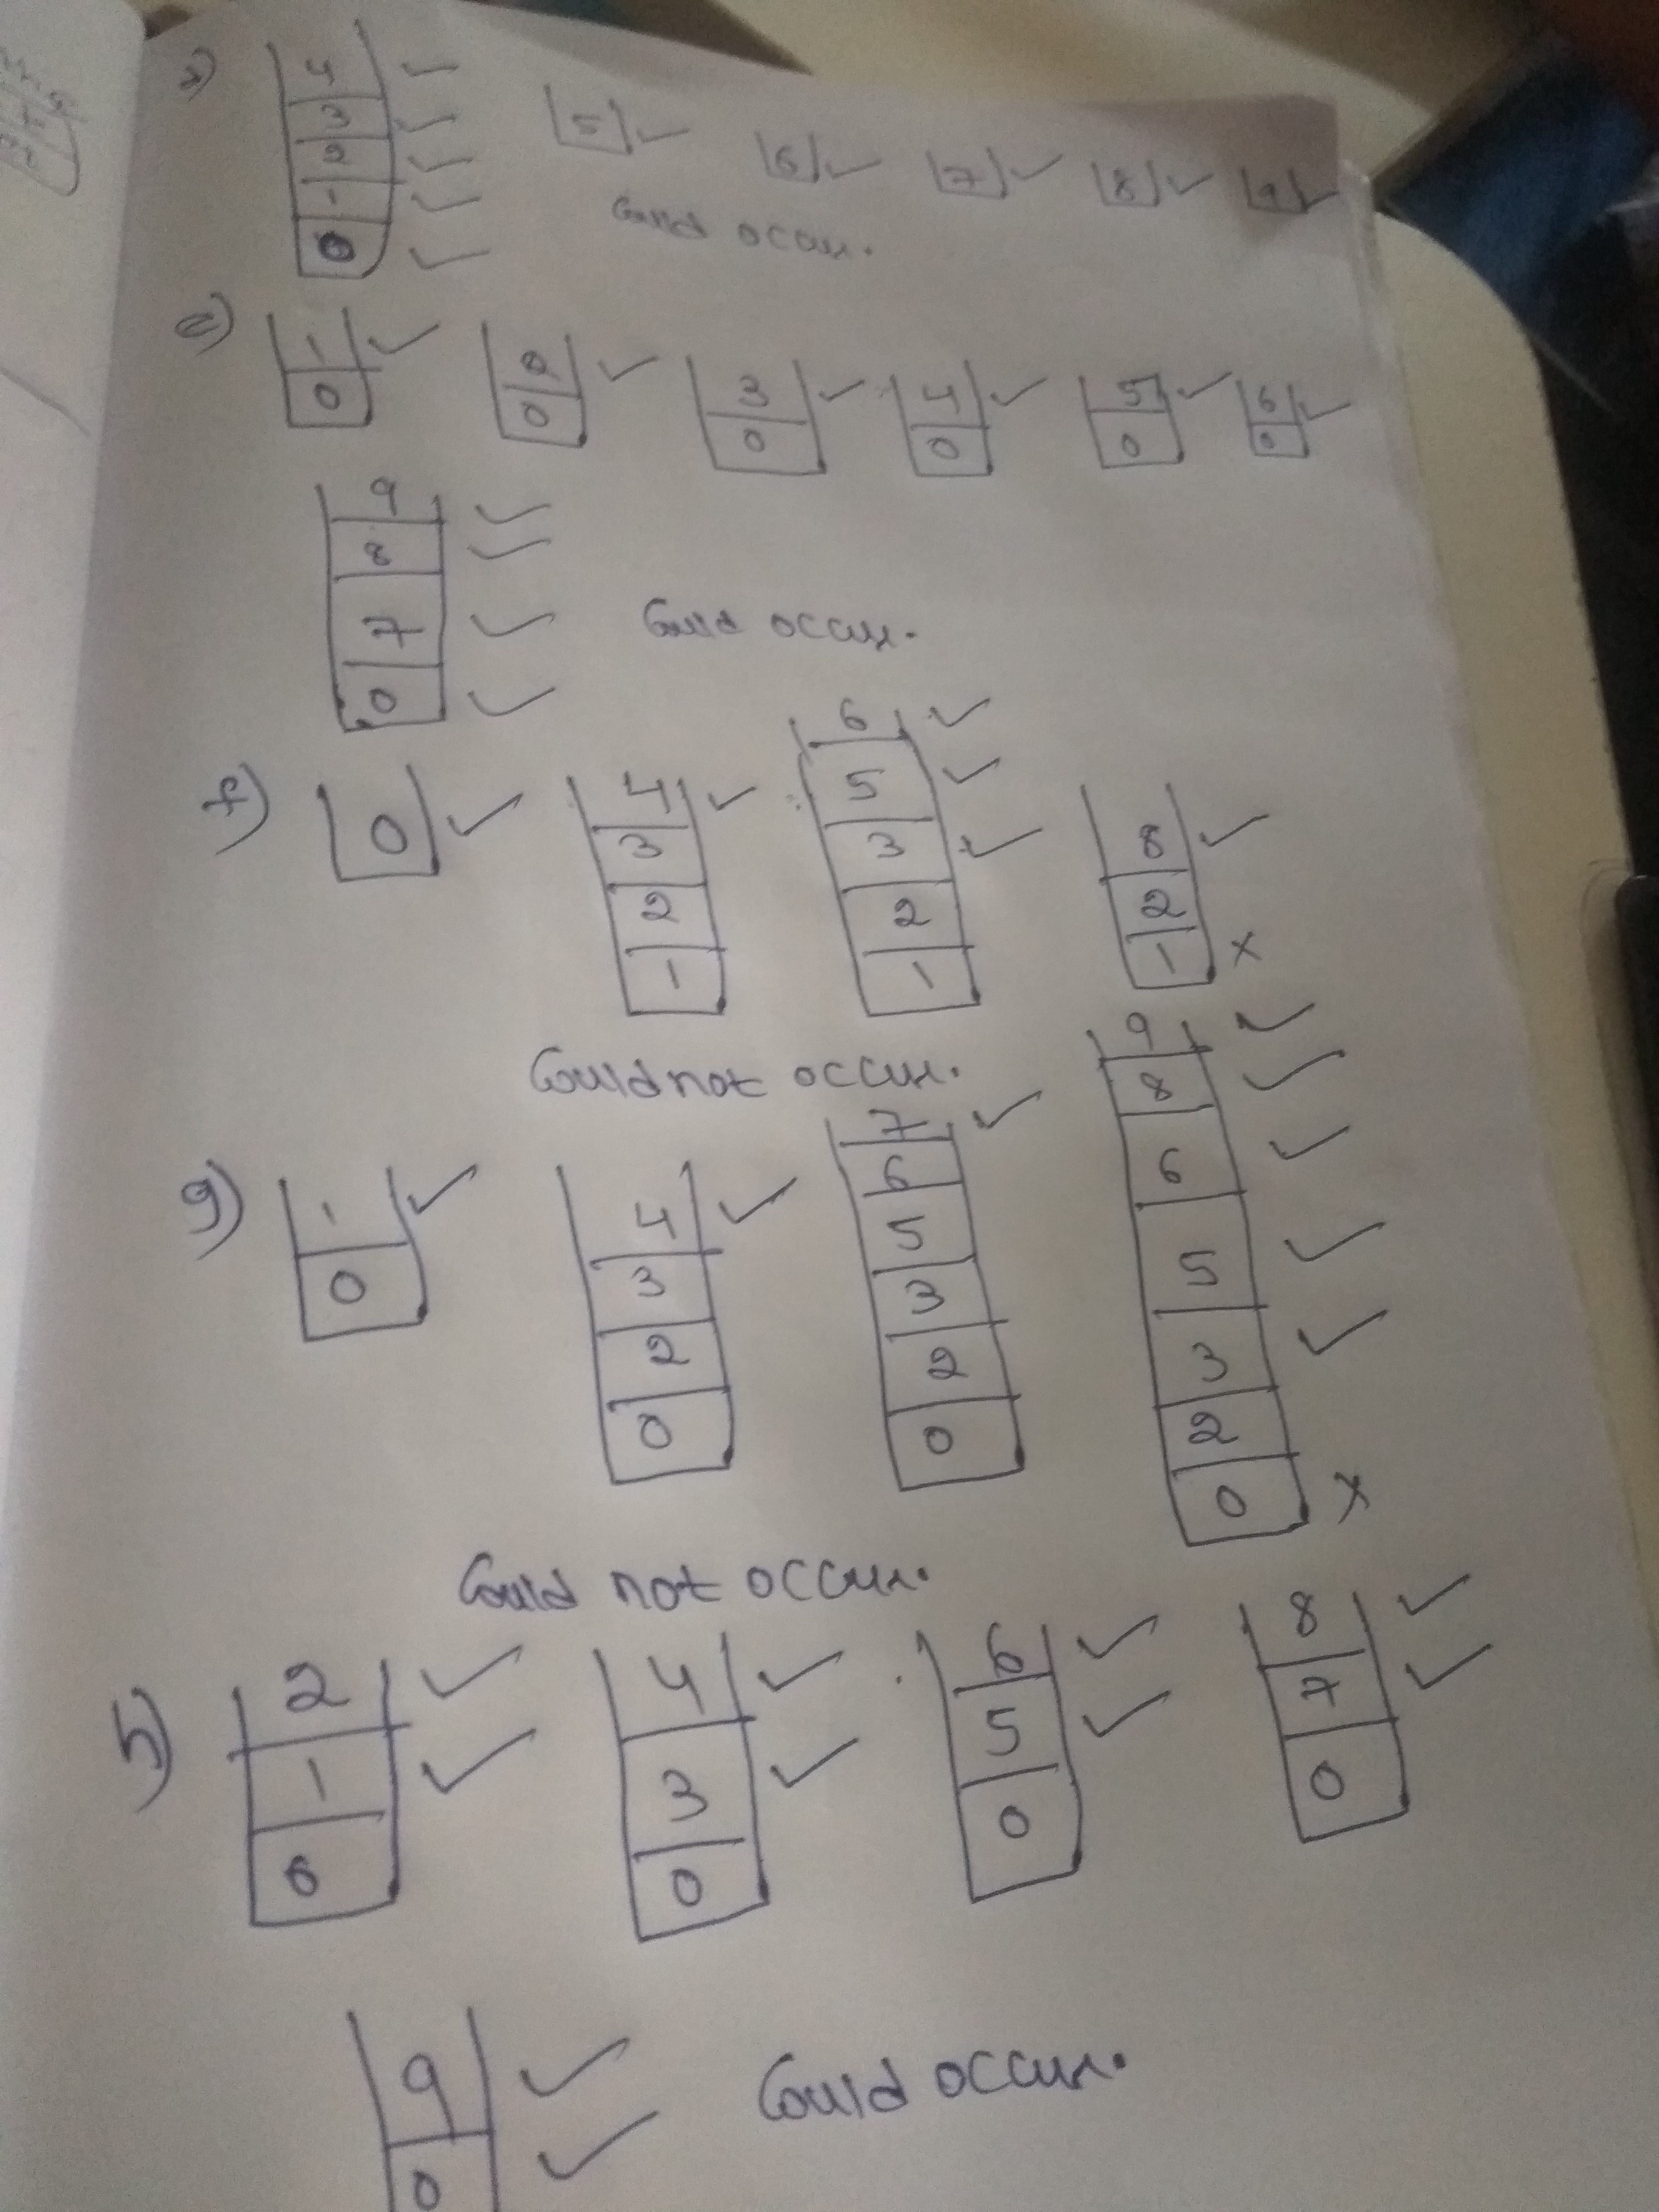 d)
4 ✓ 5 ✓ 6 ✓ 7 ✓ 8 ✓ 9 ✓
3 ✓
2 ✓
1 ✓
0 ✓
Could occur.
e)
1 ✓ 2 ✓ 3 ✓ 4 ✓ 5 ✓ 6 ✓
0 0 0 0 0 0
9 ✓
8 ✓
7 ✓
0 ✓
Could occur.
f)
0 ✓
4 ✓
3
2
1
6 ✓
5 ✓
3 ✓
2
1
8 ✓
2
1 x
Could not occur.
g)
1 ✓
0
4 ✓
3
2
0
7 ✓
6
5
3
2
0
9 ✓
8 ✓
6 ✓
5 ✓
3 ✓
2
0 x
Could not occur.
h)
2 ✓ 4 ✓ 6 ✓ 8 ✓
1 ✓ 3 ✓ 5 ✓ 7 ✓
0 0 0 0
9 ✓
0 ✓
Could occur.